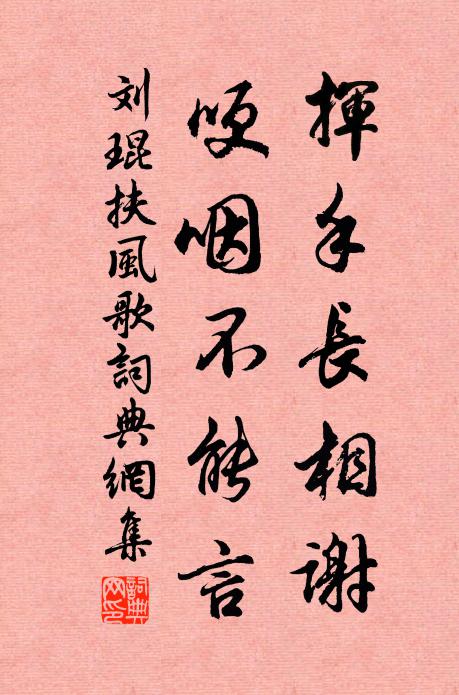 揮手長相謝
哽咽不能言
刘琨扶風歌詞典網集
詞典网印